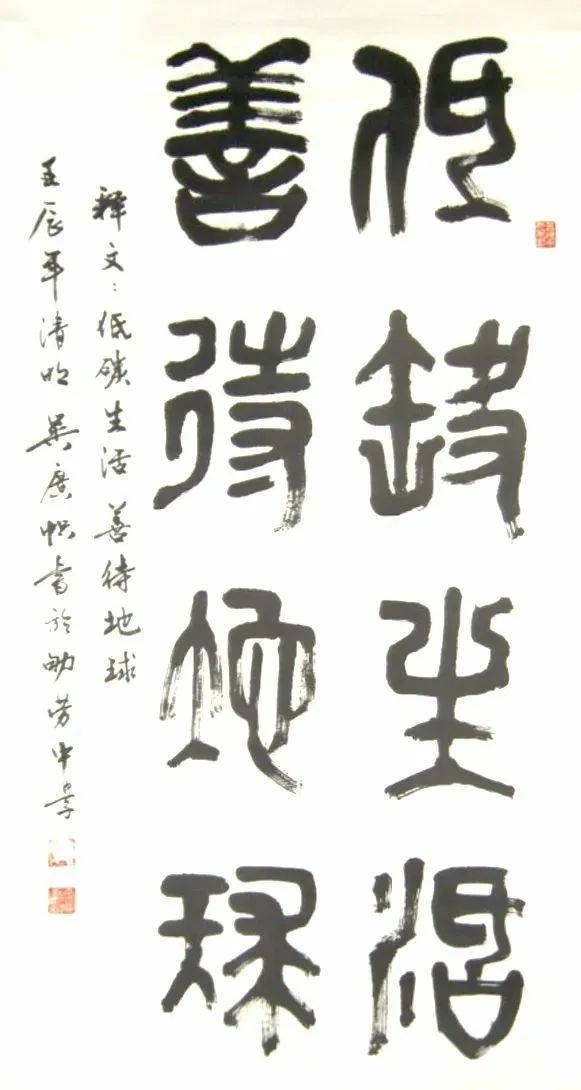 低碳生活
善待地球
释文:低碳生活 善待地球
壬辰年清明 吴广书於中学